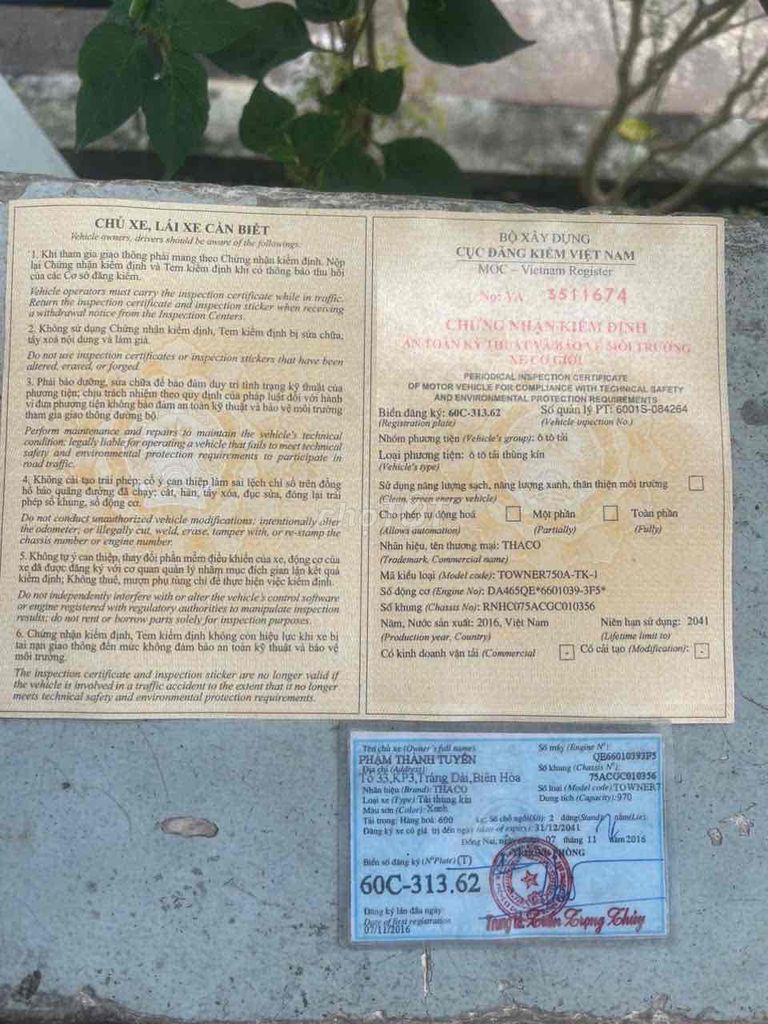 CHỦ XE, LÁI XE CẦN BIẾT
Vehicle owners, drivers should be aware of the followings.
1. Khi tham gia giao thông phải mang theo Chứng nhận kiểm định. Nộp
lại Chứng nhận kiểm định và Tem kiểm định khi có thông báo thu hồi
của các Cơ sở đăng kiểm.
Vehicle operators must carry the inspection certificate while in traffic.
Return the inspection certificate and inspection sticker when receiving
a withdrawal notice from the Inspection Centers.
2. Không sử dụng Chứng nhận kiểm định, Tem kiểm định bị sửa chữa,
tẩy xoá nội dung và làm giả.
Do not use inspection certificates or inspection stickers that have been
altered, erased, or forged.
3. Phải bảo dưỡng, sửa chữa để bảo đảm duy trì tình trạng kỹ thuật của
phương tiện; chịu trách nhiệm theo quy định của pháp luật đối với hành
vi đưa phương tiện không bảo đảm an toàn kỹ thuật và bảo vệ môi trường
tham gia giao thông đường bộ.
Perform maintenance and repairs to maintain the vehicle's technical
condition; legally liable for operating a vehicle that fails to meet technical
safety and environmental protection requirements to participate in
road traffic.
4. Không cải tạo trái phép; cố ý can thiệp làm sai lệch chỉ số trên đồng
hồ báo quãng đường đã chạy; cắt, hàn, tẩy xóa, đục sửa, đóng lại trái
phép số khung, số động cơ.
Do not conduct unauthorized vehicle modifications; intentionally alter
the odometer; or illegally cut, weld, erase, tamper with, or re-stamp the
chassis number or engine number.
5. Không tự ý can thiệp, thay đổi phần mềm điều khiển của xe, động cơ của
xe đã được đăng ký với cơ quan quản lý nhằm mục đích gian lận kết quả
kiểm định; Không thuê, mượn phụ tùng chỉ để thực hiện việc kiểm định.
Do not independently interfere with or alter the vehicle's control software
or engine registered with regulatory authorities to manipulate inspection
results; do not rent or borrow parts solely for inspection purposes.
6. Chứng nhận kiểm định, Tem kiểm định không còn hiệu lực khi xe bị
tai nạn giao thông đến mức không đảm bảo an toàn kỹ thuật và bảo vệ
môi trường.
The inspection certificate and inspection sticker are no longer valid if
the vehicle is involved in a traffic accident to the extent that it no longer
meets technical safety and environmental protection requirements.
BỘ XÂY DỰNG
CỤC ĐĂNG KIỂM VIỆT NAM
MOC – Vietnam Register
No: VA 3511674
CHỨNG NHẬN KIỂM ĐỊNH
AN TOÀN KỸ THUẬT VÀ BẢO VỆ MÔI TRƯỜNG
XE CƠ GIỚI
PERIODICAL INSPECTION CERTIFICATE
OF MOTOR VEHICLE FOR COMPLIANCE WITH TECHNICAL SAFETY
AND ENVIRONMENTAL PROTECTION REQUIREMENTS
Biển đăng ký: 60C-313.62 Số quản lý PT: 6001S-084264
(Registration plate) (Vehicle inspection No.)
Nhóm phương tiện (Vehicle's group): ô tô tải
Loại phương tiện: ô tô tải thùng kín
(Vehicle's type)
Sử dụng năng lượng sạch, năng lượng xanh, thân thiện môi trường
(Clean, green energy vehicle)
Cho phép tự động hoá Một phần Toàn phần
(Allows automation) (Partially) (Fully)
Nhãn hiệu, tên thương mại: THACO
(Trademark, Commercial name)
Mã kiểu loại (Model code): TOWNER750A-TK-1
Số động cơ (Engine No): DA465QE*6601039-3F5*
Số khung (Chassis No): RNHC075ACGC010356
Năm, Nước sản xuất: 2016, Việt Nam Niên hạn sử dụng: 2041
(Production year, Country) (Lifetime limit to)
Có kinh doanh vận tải (Commercial - Có cải tạo (Modification): -
Tên chủ xe (Owner's full name)
PHẠM THÀNH TUYÊN
Địa chỉ (Address)
Tổ 33,KP3,Trảng Dài,Biên Hòa
Nhãn hiệu (Brand): THACO
Loại xe (Type): Tải thùng kín
Màu sơn (Color): Xanh
Tải trọng: Hàng hoá: 600
Số máy (Engine N°):
QE66010393F5
Số khung (Chassis N°):
75ACGC010356
Số loại (Model code): TOWNER7
Dung tích (Capacity): 970
Số chỗ ngồi(Sit): 2 đứng(Stand) nằm(Lie)
Đăng ký xe có giá trị đến ngày (date of expiry) 31/12/2041
Đồng Nai, 07 tháng 11 năm 2016
PHÒNG
Biển số đăng ký (N°Plate) (T)
60C-313.62
Đăng ký lần đầu ngày
Date of first registration
07/11/2016
Trần Trọng Thủy